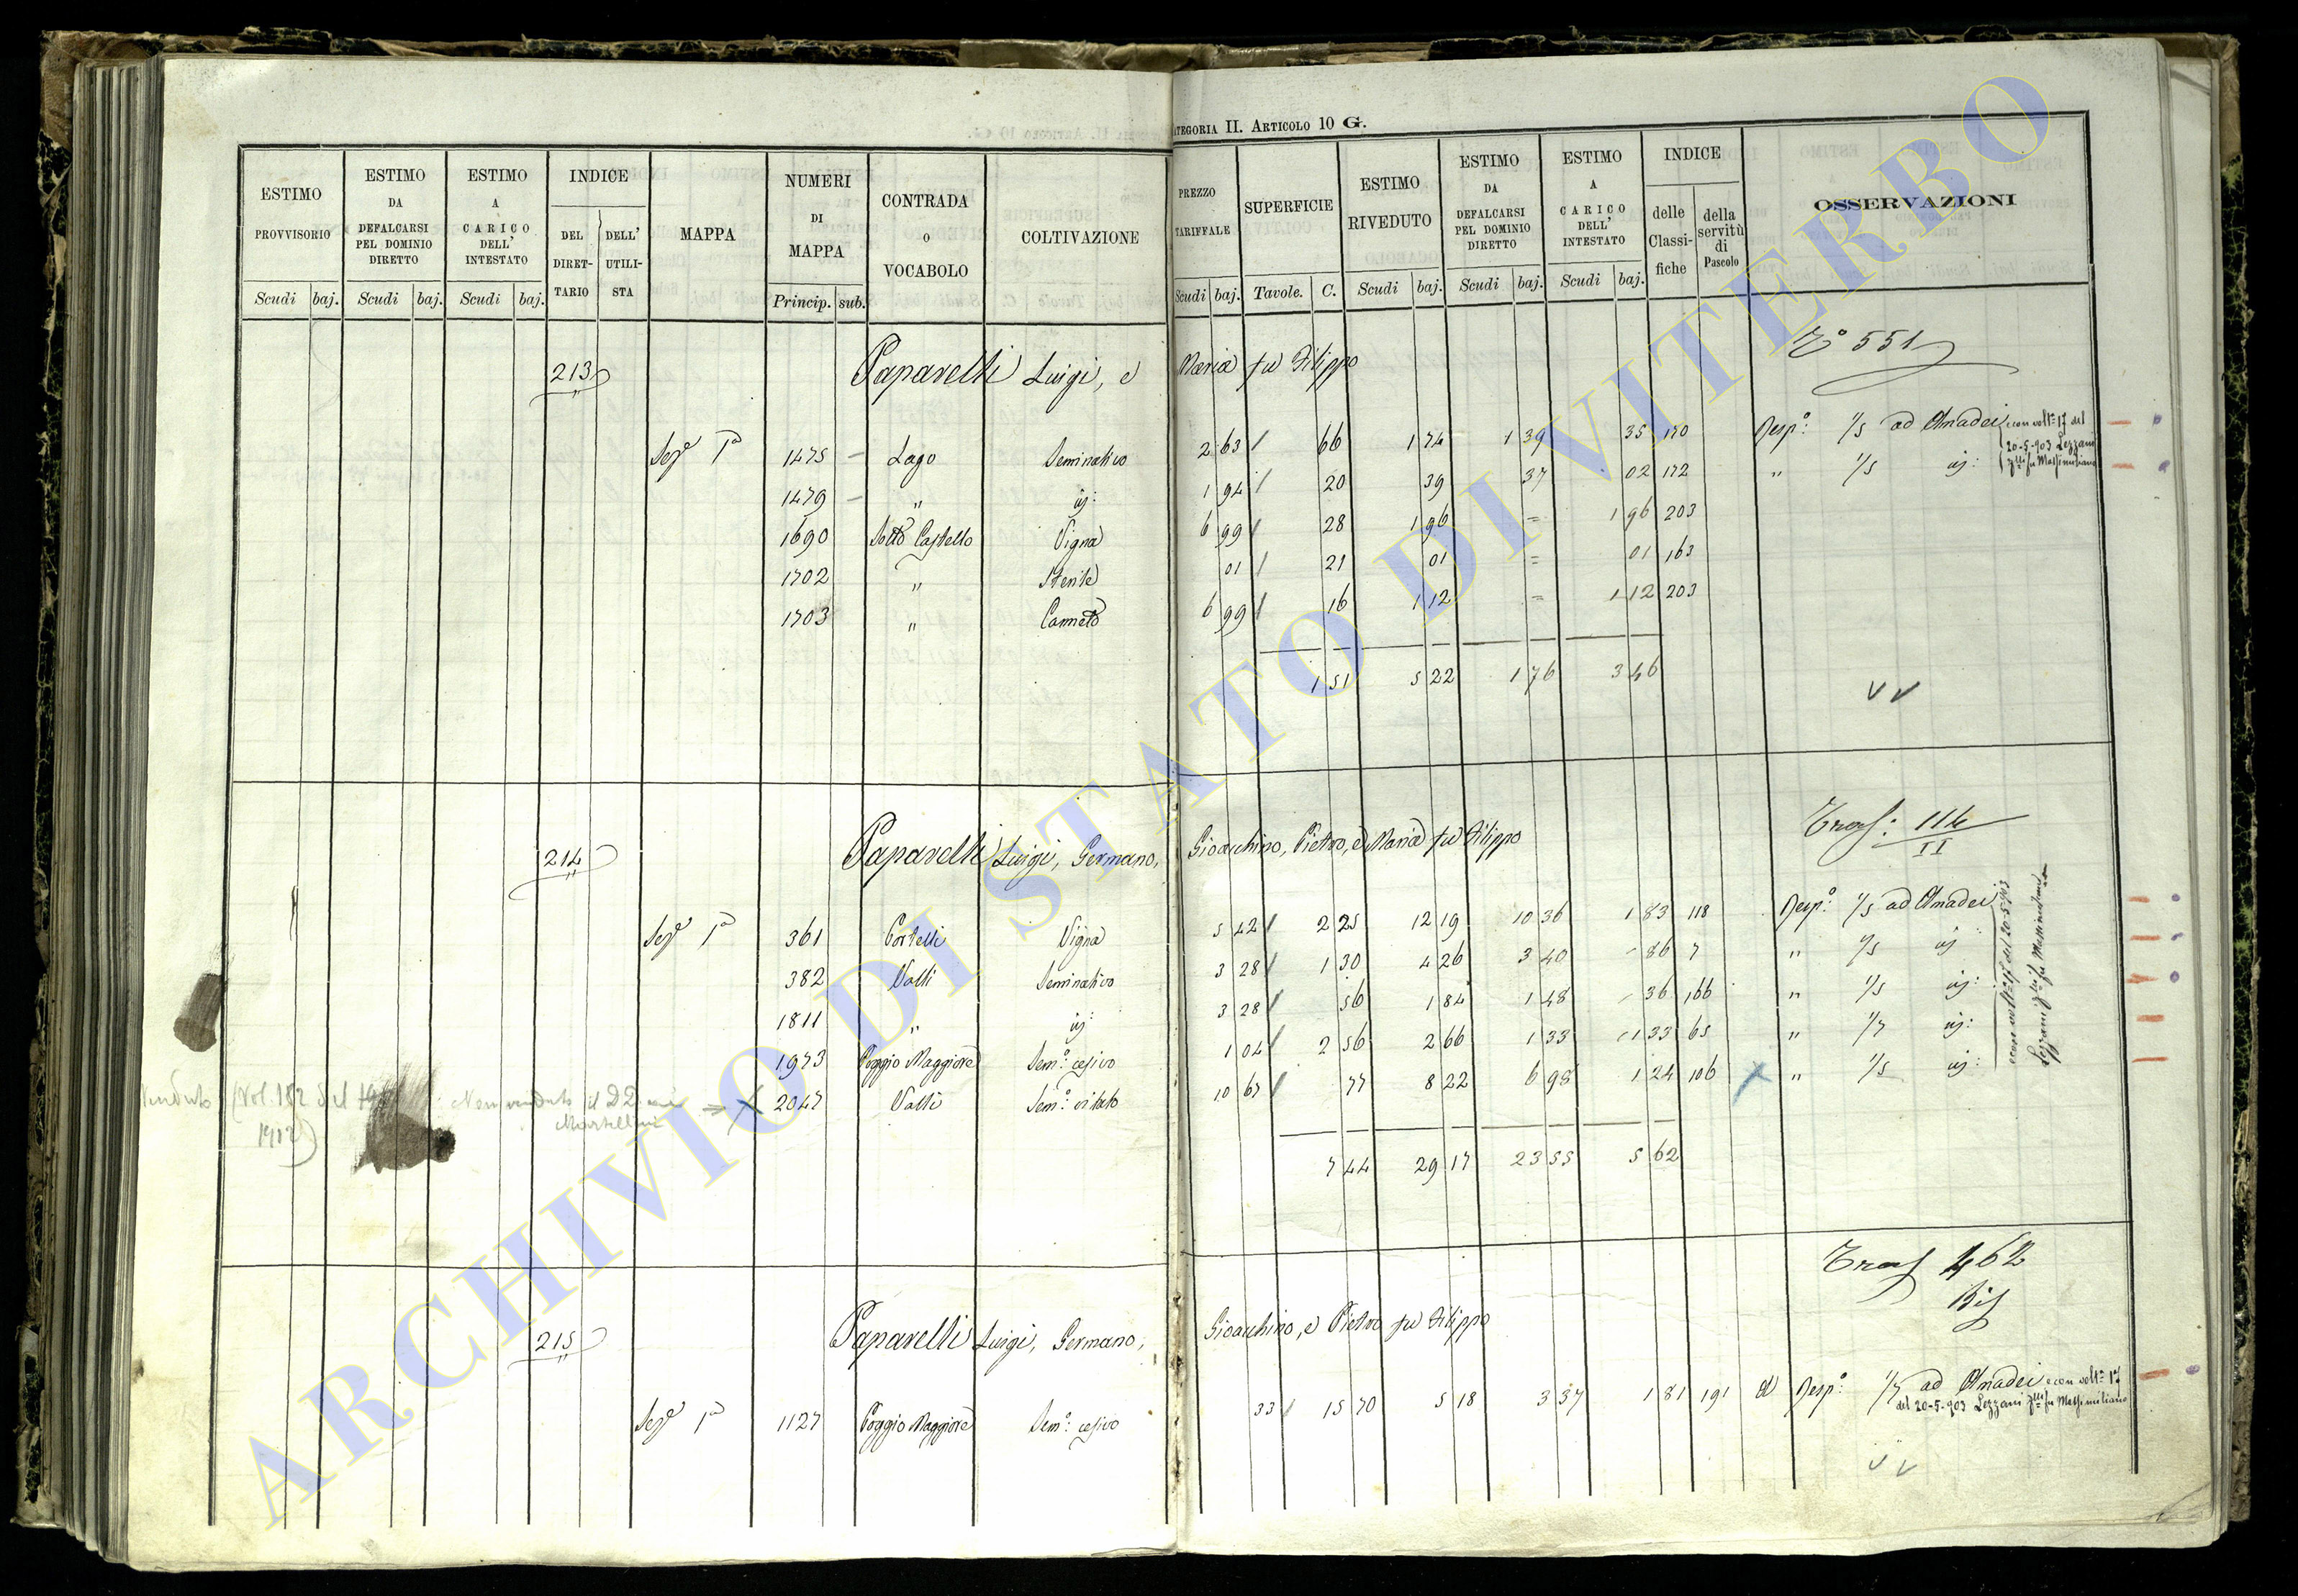 CATEGORIA II. ARTICOLO 10 G.
ESTIMO PROVVISORIO
ESTIMO DA DEFALCARSI PEL DOMINIO DIRETTO
ESTIMO A CARICO DELL' INTESTATO
INDICE
DEL DIRETTARIO
DELL' UTILISTA
MAPPA
NUMERI DI MAPPA
CONTRADA O VOCABOLO
COLTIVAZIONE
PREZZO TARIFFALE
SUPERFICIE
ESTIMO RIVEDUTO
ESTIMO DA DEFALCARSI PEL DOMINIO DIRETTO
ESTIMO A CARICO DELL' INTESTATO
INDICE
delle Classifiche
della servitù di Pascolo
OSSERVAZIONI
Scudi baj. Scudi baj. Scudi baj. Princip. sub. Scudi baj. Tavole. C. Scudi baj. Scudi baj. Scudi baj.
213 Paparelli Luigi, e Maria fu Filippo No 551
Seze 1a 1475 Lago Seminativo 2 63 66 1 74 1 39 35 170 Resp: 1/5 ad Amadei e con volt.a 17 del
20-5-903 Lezzani
fu Massimiliano
1479 " id: 1 94 20 39 37 02 172 " 1/5 id:
1690 Sotto Castello Vigna 6 99 28 1 96 = 1 96 203
1702 " Sterile 01 21 01 = 01 163
1703 " Canneto 6 99 16 1 12 = 1 12 203
1 51 5 22 1 76 3 46
V V
214 Paparelli Luigi, Germano, Gioacchino, Pietro, e Maria fu Filippo Tras: 114
II
Seze 1a 361 Cortelli Vigna 5 42 2 25 12 19 10 36 1 83 118 Resp: 1/5 ad Amadei
382 Valli Seminativo 3 28 1 30 4 26 3 40 86 7 " 1/5 id
1811 " id: 3 28 56 1 84 1 48 36 166 " 1/5 id:
1973 Poggio Maggiore Sem: cesivo 1 04 2 56 2 66 1 33 1 33 65 " 1/7 id:
2047 Valli Sem: vitato 10 67 77 8 22 6 98 1 24 106 " 1/5 id:
e con volt.a 17 del 20-5-903
Lezzani fu Massimiliano
(Vol. 182 del
7 44 29 17 23 55 5 62
215 Paparelli Luigi, Germano, Gioacchino, e Pietro fu Filippo Tras 462
Bis
Seze 1a 1127 Poggio Maggiore Sem: cesivo 33 15 70 5 18 3 37 1 81 191 Resp: 1/7 ad Amadei e con volt.a 17
del 20-5-903 Lezzani fu Massimiliano
V V
ARCHIVIO DI STATO DI VITERBO